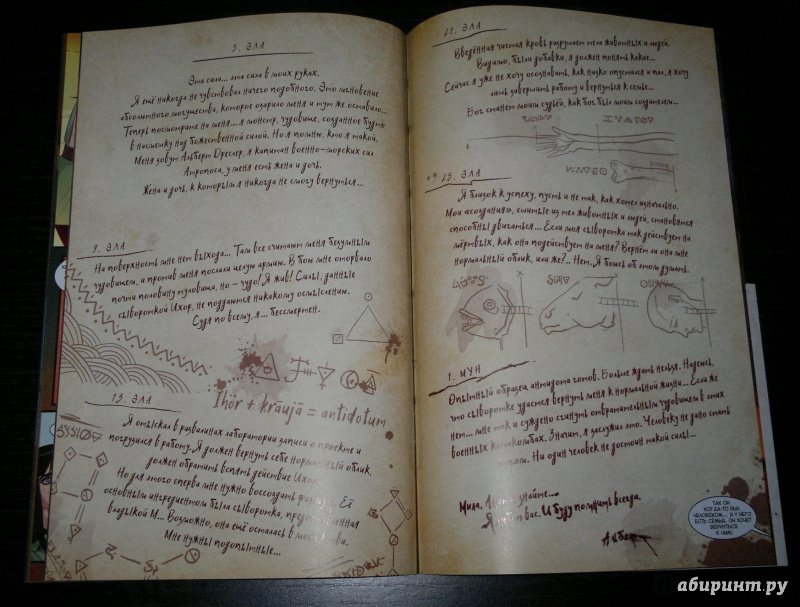 5. ЭЛА
Эта сила... эта сила в моих руках.
Я ещё никогда не чувствовал ничего подобного. Это мгновение
абсолютного могущества, которое озарило меня и тут же оставило...
Теперь посмотрите на меня... я монстр, чудовище, созданное будто
в насмешку над божественной силой. Но я помню, кто я такой.
Меня зовут Альберт Дреслер, я капитан военно-морских сил
Атропоса, у меня есть жена и дочь.
Жена и дочь, к которым я никогда не смогу вернуться...
9. ЭЛА
На поверхность мне нет выхода... Там все считают меня безумным
чудовищем, и против меня послали целую армию. В бою мне оторвало
почти половину туловища, но – чудо! Я жив! Силы, данные
сывороткой Ихор, не поддаются никакому осмыслению.
Судя по всему, я... бессмертен.
Ihōr + krāujā = antidotum
13. ЭЛА
Я отыскал в развалинах лаборатории записи о проекте и
погрузился в работу. Я должен вернуть себе нормальный облик,
должен обратить вспять действие
Но для этого сперва мне нужно воссоздать Её
основным ингредиентом была сыворотка,
владыкой М... Возможно, она ещё осталась в моей крови.
Мне нужны подопытные...
21. ЭЛА
Введённая чистая кровь разрушает тела животных и людей.
Видимо, были добавки, я должен понять какие...
Сейчас я уже не хочу осознавать, как низко опустился и пал, я хочу
лишь завершить работу и вернуться к семье...
Бог станет моим судьёй, как бог был моим создателем...
25. ЭЛА
Я близок к успеху, пусть и не так, как хотел изначально.
Мои «создания», сшитые из тел животных и людей, становятся
способны двигаться... Если моя сыворотка так действует на
мёртвых, как она подействует на меня? Вернёт ли она мне
нормальный облик, или же?.. Нет. Я боюсь об этом думать.
1. МУН
Опытный образец антидота готов. Больше ждать нельзя. Надеюсь,
что сыворотке удастся вернуть меня к нормальной жизни... Если же
нет... мне так и суждено сгинуть отвратительным чудовищем в этих
военных катакомбах. Значит, я заслужил это. Человеку не дано стать
богом. Ни один человек не достоин такой силы...
знайте...
вас. И буду всегда.
ТАК ОН
КОГДА-ТО БЫЛ
ЧЕЛОВЕКОМ... И У НЕГО
ЕСТЬ СЕМЬЯ. ОН ХОЧЕТ
ВЕРНУТЬСЯ
К НИМ!
абиринт.ру